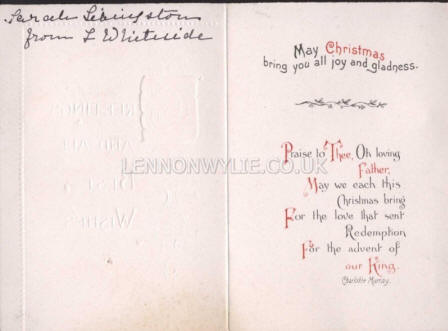 Sarah Livingston
from L Whiteside
GREETINGS
AND ALL
BEST
WISHES
LENNONWYLIE.CO.UK
May Christmas
bring you all joy and gladness.
Praise to Thee, Oh loving
Father,
May we each this
Christmas bring
For the love that sent
Redemption
For the advent of
our King.
Charlotte Murray.